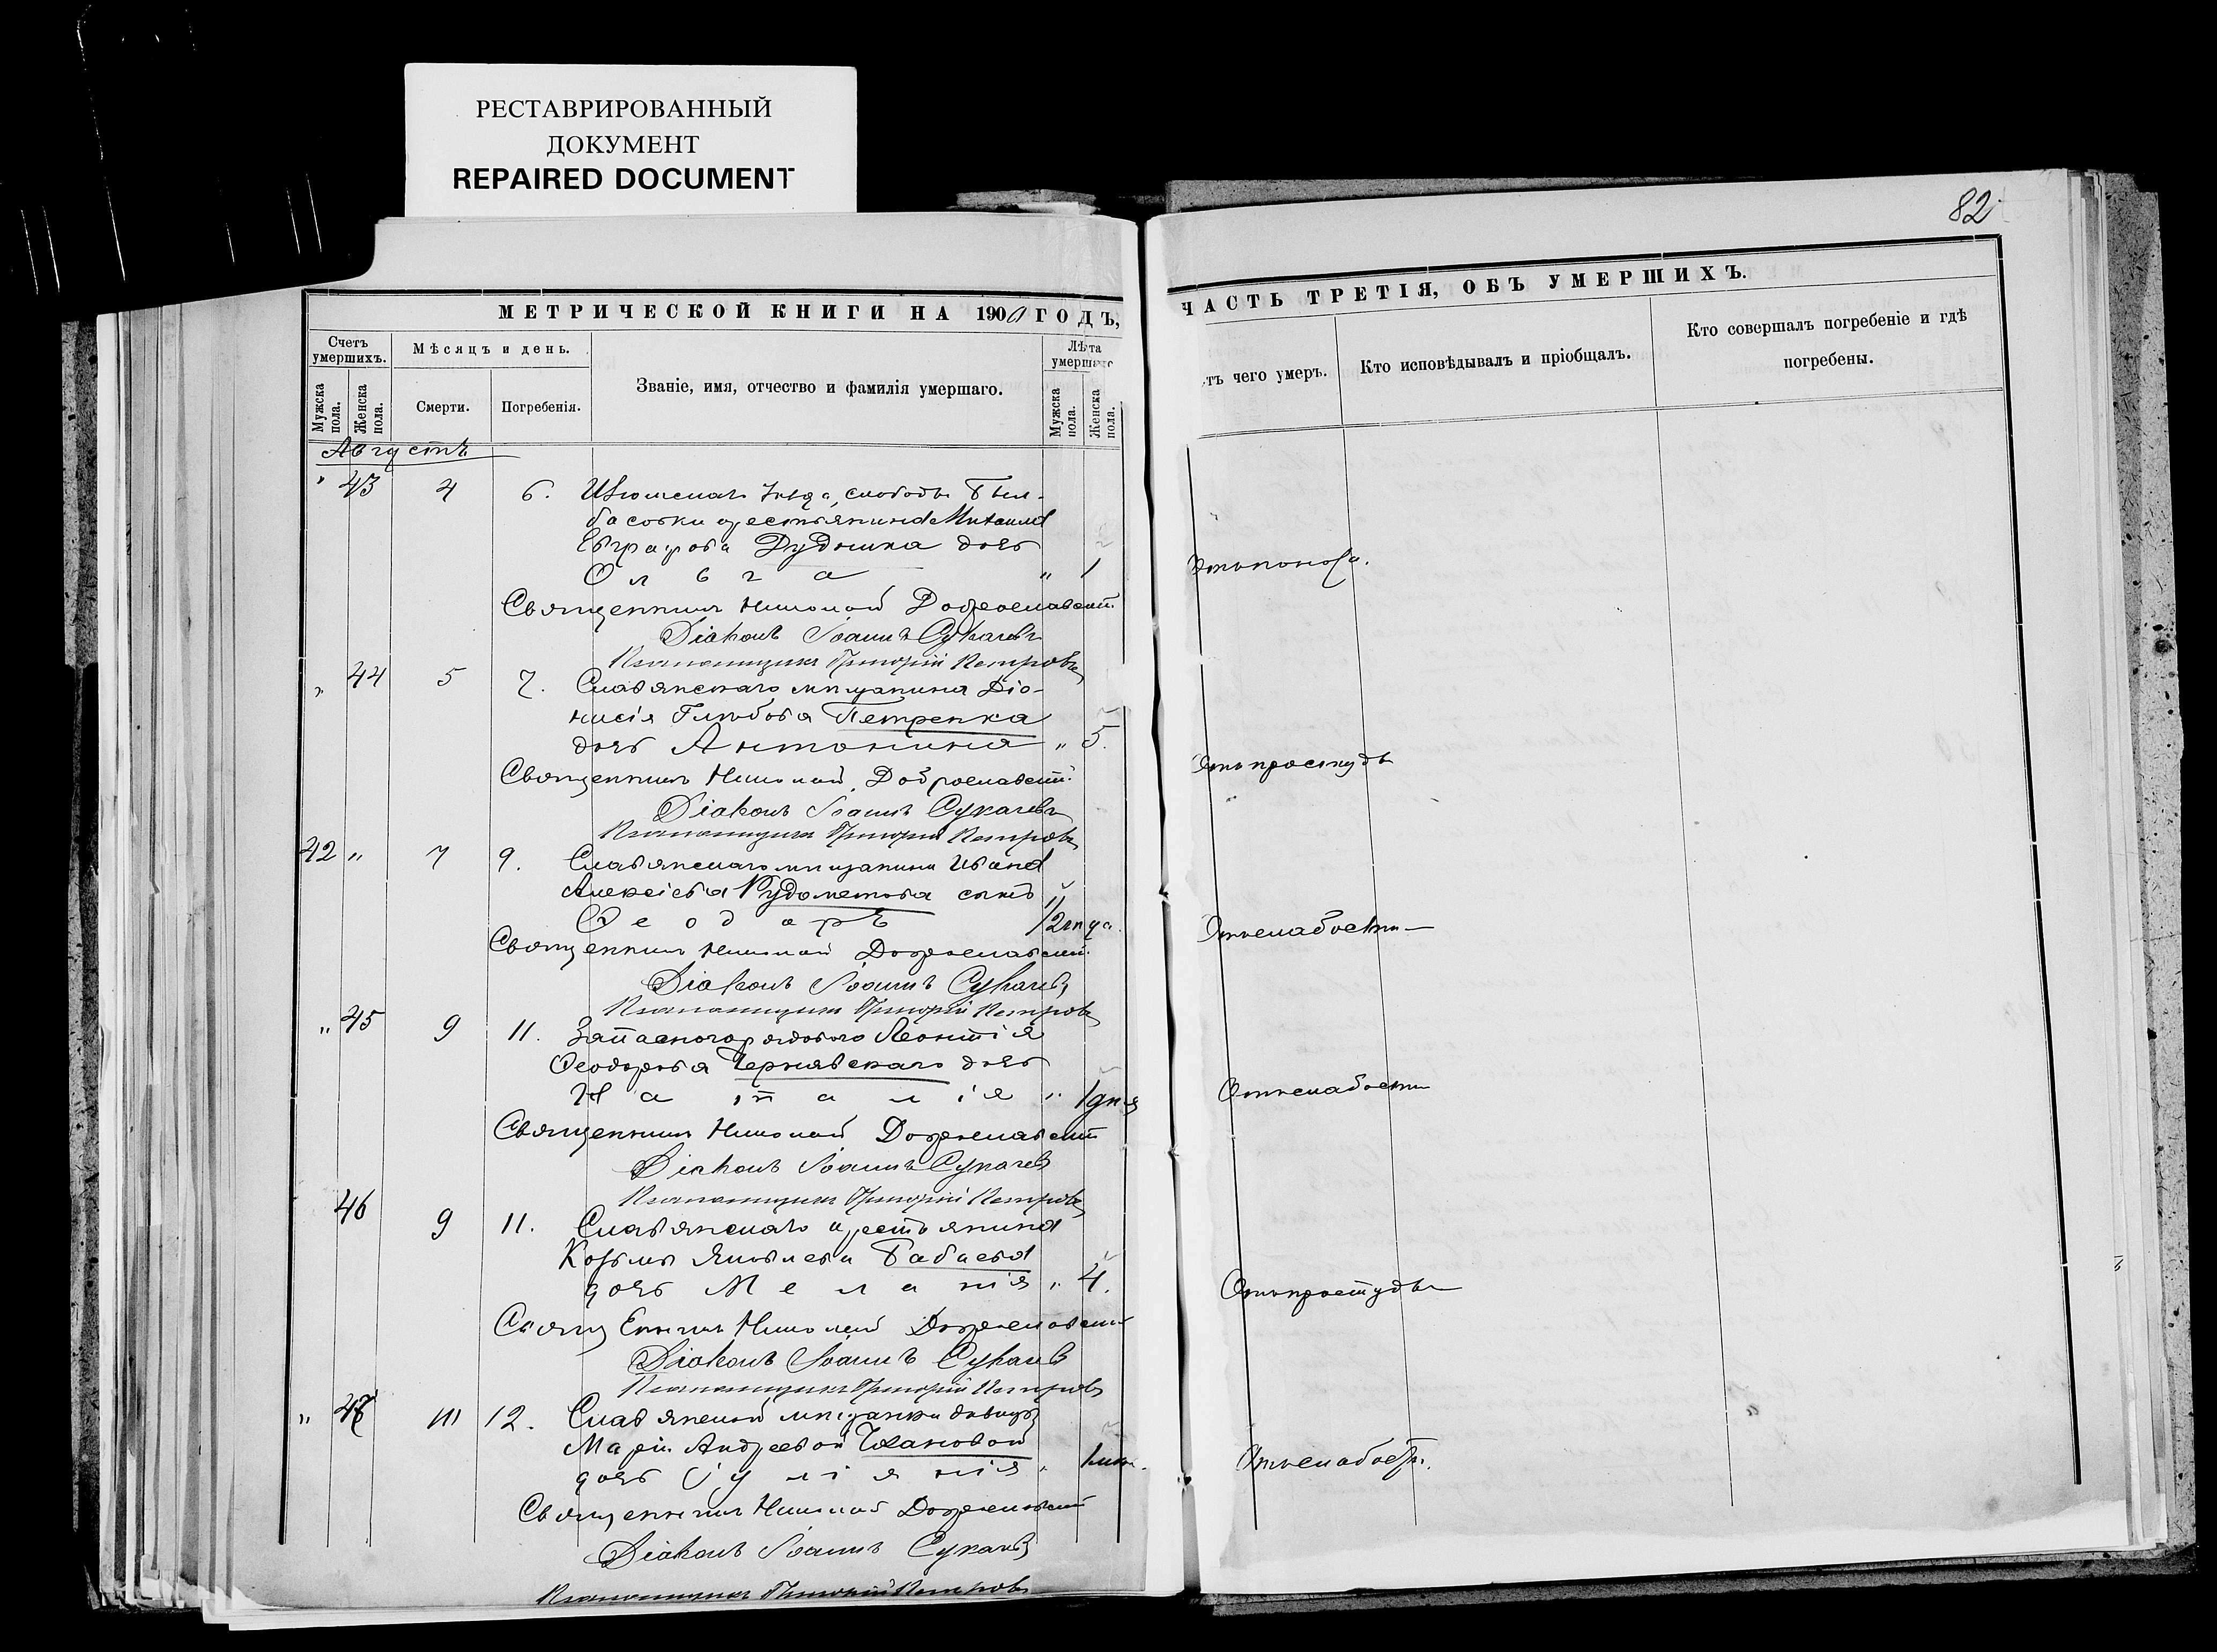 РЕСТАВРИРОВАННЫЙ
ДОКУМЕНТ
REPAIRED DOCUMENT
82
МЕТРИЧЕСКОЙ КНИГИ НА 1900 ГОДЪ,
ЧАСТЬ ТРЕТІЯ, ОБЪ УМЕРШИХЪ.
Счетъ умершихъ.
Мѣсяцъ и день.
Званіе, имя, отчество и фамилія умершаго.
Лѣта умершаго
Мужска пола.
Женска пола.
Смерти.
Погребенія.
Мужска пола.
Женска пола.
тъ чего умеръ.
Кто исповѣдывалъ и пріобщалъ.
Кто совершалъ погребеніе и гдѣ погребены.
Августъ
" 43 4 6. Изюмскаго уѣзда, слободы Был-
басовки крестьянина Михаила
Евграфова Дудника дочь
Ольга " 1
Отъ поноса.
Священникъ Николай Доброславскій
Діаконъ Іоаннъ Сукачевъ
Псаломщикъ Григорій Петровъ
" 44 5 7. Славянскаго мѣщанина Діо-
нисія Глѣбова Петренка
дочь Антонина " 5.
Отъ простуды
Священникъ Николай Доброславскій
Діаконъ Іоаннъ Сукачевъ
Псаломщикъ Григорій Петровъ
42 " 7 9. Славянскаго мѣщанина Ивана
Алексіева Рудометова сынъ
Ѳеодоръ 1/2 года.
Отъ слабости
Священникъ Николай Доброславскій
Діаконъ Іоаннъ Сукачевъ
Псаломщикъ Григорій Петровъ
" 45 9 11. Запаснаго рядового Леонтія
Ѳеодорова Чернявскаго дочь
Наталія " 1 дня
Отъ слабости
Священникъ Николай Доброславскій
Діаконъ Іоаннъ Сукачевъ
Псаломщикъ Григорій Петровъ
46 9 11. Славянскаго крестьянина
Козьмы Яковлева Бабаева
дочь Меланія " 4.
Отъ простуды
Священникъ Николай Доброславскій
Діаконъ Іоаннъ Сукачевъ
Псаломщикъ Григорій Петровъ
" 47 12. Славянской мѣщанки дѣвицы
Маріи Андреевой
дочь Іуліянія " 1
Отъ слабости.
Священникъ Николай Доброславскій
Діаконъ Іоаннъ Сукачевъ
Псаломщикъ Григорій Петровъ